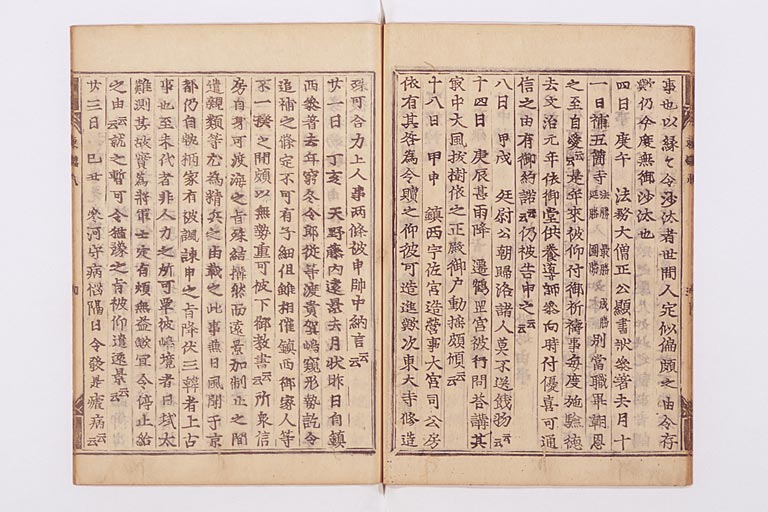 事也以蘇々令沙汰者世間人定似偏頗之由令存
歟仍今度無御沙汰也
四日 庚午 法務大僧正公顯書狀參著去月十
一日補五箇寺 別當職畢朝恩
之至自愛云云是年來被仰付御祈禱事每度施驗德
去文治元年依御堂供養導師參向時付優喜可通
信之由有御約諾云云仍被告申之云云
八日 甲戌 廷尉公朝歸洛諸人莫不送餞物云云
十四日 庚辰甚雨降 遷鶴罡宮被行問答講其
寂中大風拔樹依之正殿御戶動搖頗傾云云
十八日 甲申 鎮西宇佐宮造營事大宮司公房
依有其咎為令贖之仰彼可造進歟次東大寺修造
殊可合力上人事兩條被申帥中納言云云
廿一日 丁亥 天野藤內遠景去月狀昨日自鎮
西參著去年窮冬令郎從等渡貴賀嶋窺形勢訖令
追補之條定不可有子細但雖相催鎮西御家人等
不一揆之間頗以無勢重可被下御教書云云所衆信
房自身可渡海之旨殊結搆然而遠景加制止之間
遣親類等尤為精兵之由載之此事兼日風聞于京
都仍自執柄家有被諷諫申之旨降伏三韓者上古
事也至末代者非人力之所可覃彼嶋境者日域太
難測其故實為將軍士定有煩無益歟宜令停止給
之由云云就之暫可令猶豫之旨被仰遣遠景云云
廿三日 己丑 寒河守病惱隔日令發是瘧病云云